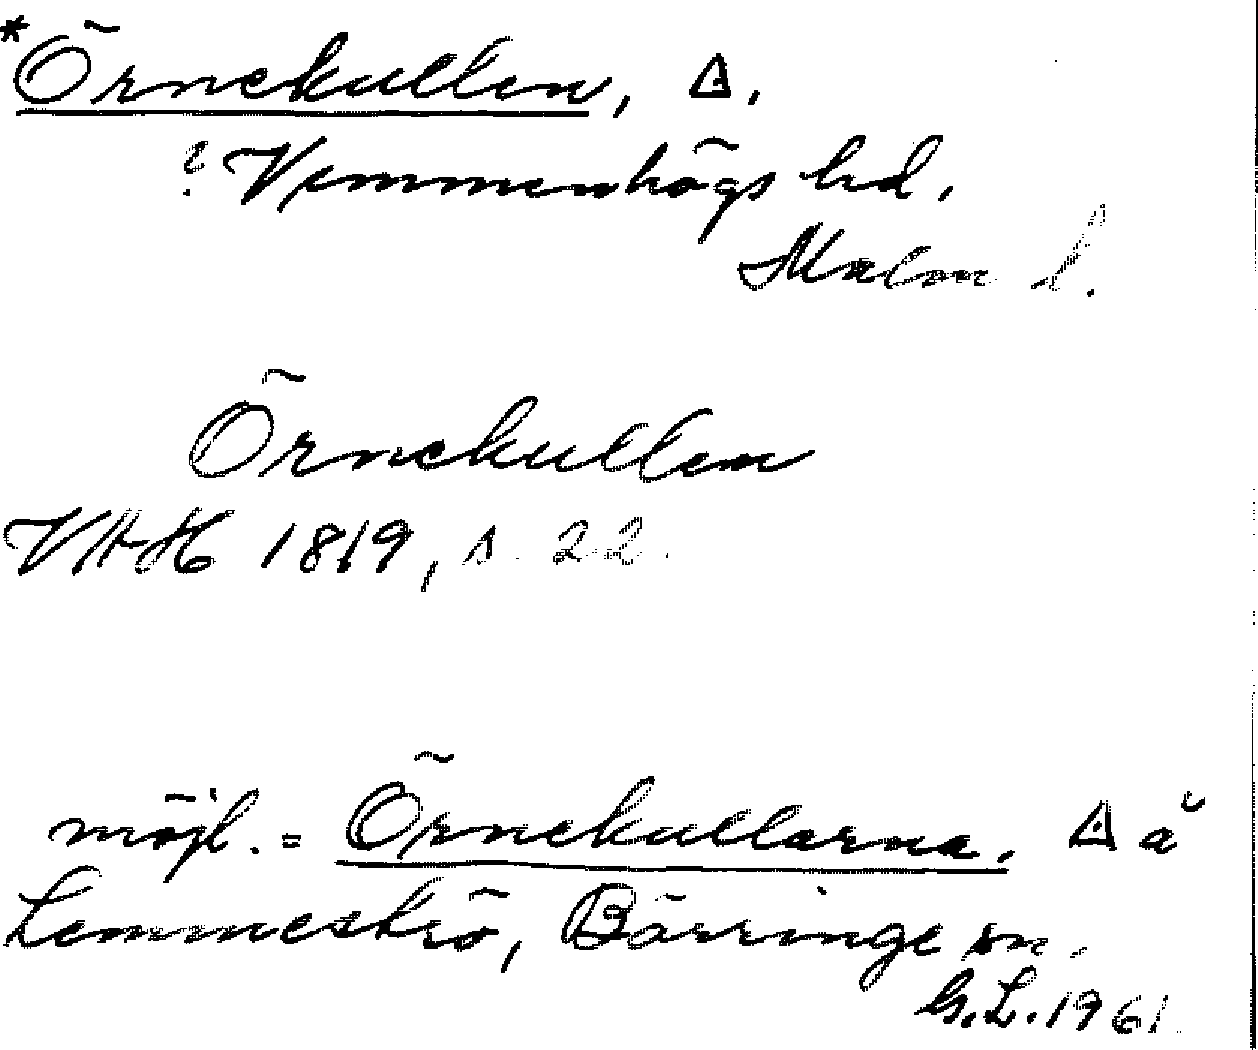 *Örnekullen, ∆.
? Vemmenhögs hd.
Malm l.
Örnekullen
VAH 1819, s. 22.
möjl. = Örnekullarna. ∆ å
Lemmeströ, Börringe sn.
G.L. 1961.